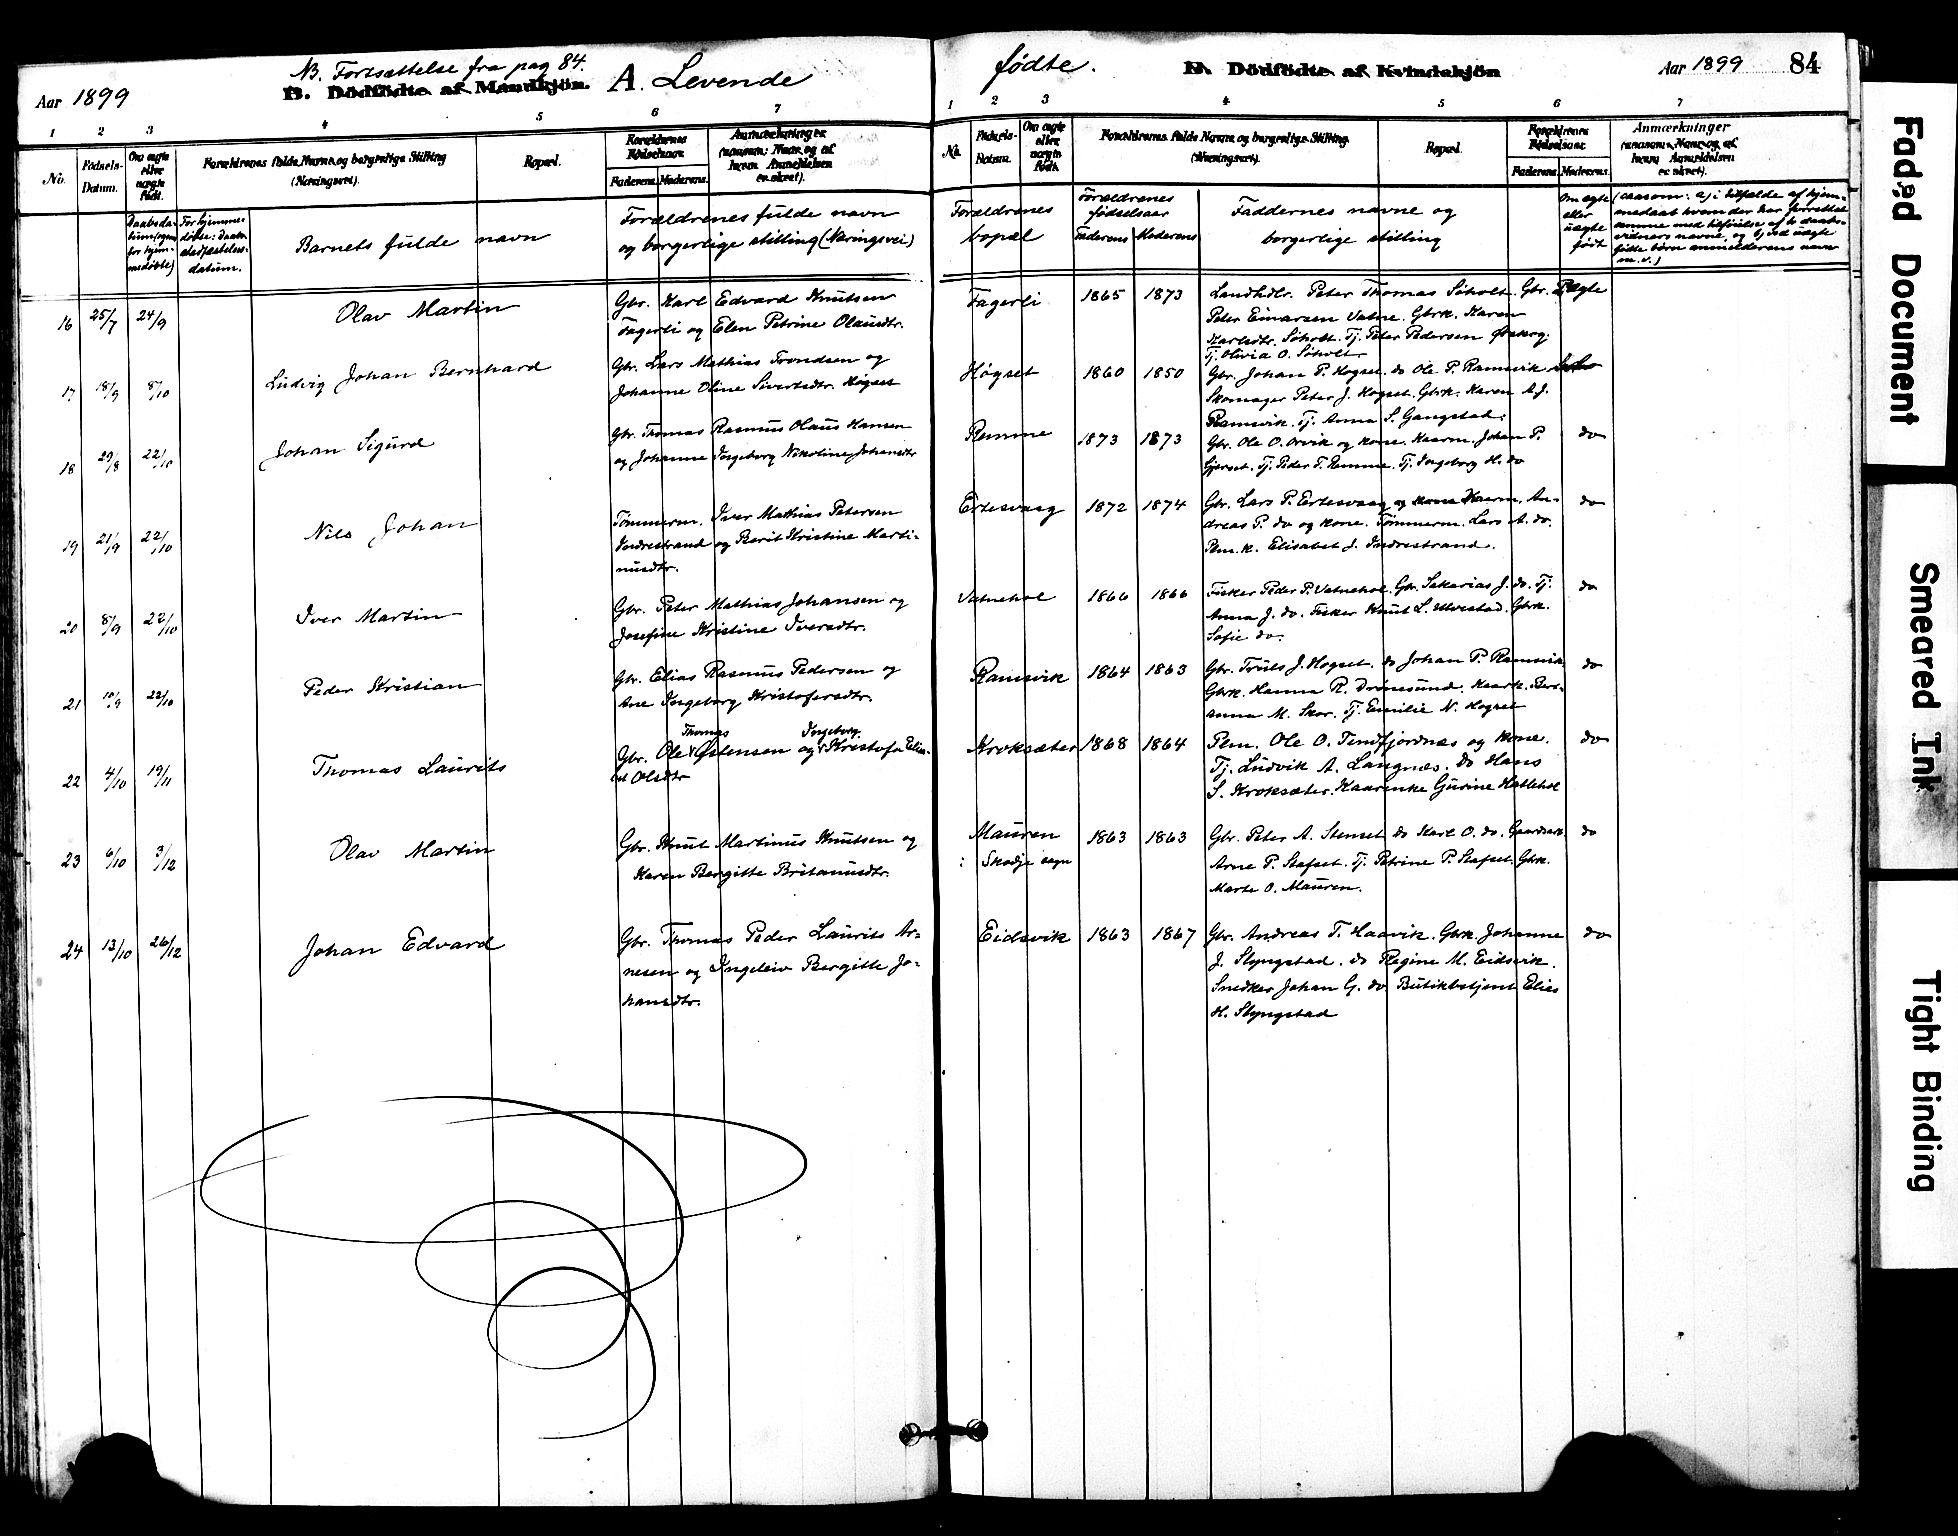 Aar 1899
NB. Fortsættelse fra pag 84.
B. Dödfödte af Mandkjön. A. Levende
1 2 3 4 5 6 7
No. Fødsels-Datum. Om ægte eller uægte født. Forældrenes fulde Navne og borgerlige Stilling (Næringsvei). Bopæl. Forældrenes Fødselsaar Faderens. Moderens. Anmærkninger
Barnets fulde navn
Forældrenes fulde navn
og borgerlige stilling (Næringsvei)
16 25/7 24/9 Olav Martin
Gbr. Karl Edvard Knutsen
Fagerli og Elen Petrine Olausdtr.
17 18/9 8/10 Ludvig Johan Bernhard
Gbr. Lars Mathias Trondsen og
Johanne Oline Sivertsdtr. Høgset
18 29/8 22/10 Johan Sigurd
Gbr. Thomas Rasmus Olaus Hansen
og Johanne Ingeborg Nikoline Johansdtr
19 21/9 22/10 Nils Johan
Tømmerm. Iver Mathias Petersen
Indrestrand og Berit Kristine Marti-
nusdtr.
20 8/9 22/10 Iver Martin
Gbr. Peter Mathias Johansen og
Josefine Kristine Iversdtr.
21 10/9 22/10 Peder Kristian
Gbr. Elias Rasmus Pedersen og
Ane Ingeborg Kristofersdtr.
22 4/10 19/11 Thomas Laurits
Thomas Ingeborg
Gbr. Ole Østensen og Kristofa Elisa-
bet Olsdtr
23 6/10 3/12 Olav Martin
Gbr. Knut Martinus Knutsen og
Karen Bergitte Britanusdtr.
24 13/10 26/12 Johan Edvard
Gbr. Thomas Peder Laurits Ar-
nesen og Ingeleiv Bergitte Jo-
hansdtr.
fødte. B. Dödfödte af Kvindekjön Aar 1899 84
1 2 3 4 5 6 7
No. Fødsels-Datum. Om ægte eller uægte født. Forældrenes fulde Navne og borgerlige Stilling (Næringsvei). Bopæl. Forældrenes Fødselsaar Faderens. Moderens. Anmærkninger
Forældrenes
bopæl
Forældrenes
fødselsaar
Faderens Moderens
Faddernes navne og
borgerlige stilling
Om ægte
eller
uægte
født
Fagerli 1865 1873 Landhdlr. Peter Thomas Søholt. Gbr. Ægte
Peter Einarsen Vatne. Gbrk. Karen
Karlsdtr. Søholt. Tj. Peter Pedersen
Tj. Olivia O. Søholt
Høgset 1860 1850 Gbr. Johan P. Høgset. do Ole P. Ramsvik
Skomager Peter J. Høgset. Gbrk. Karen A. J.
Ramsvik. Tj. Anna S. Gangstad.
Remme 1873 1873 Gbr. Ole O. Orvik og kone. Kaarm. Johan P. do
Gjerset. Tj. Peder T. Remme. Tj. Ingeborg H. do
Ertesvaag 1872 1874 Gbr. Lars P. Ertesvaag og kone Kaarm. An- do
dreas P. do og kone. Tømmerm. Lars A. do.
Pem. k. Elisabet J. Indrestrand.
Vatnehol 1866 1866 Fisker Peder P. Vatnehol. Gbr. Sakarias J. do. Tj. do
Anna J. do. Fisker Knut L. Ulvestad. Gbrk.
Sofie do.
Ramsvik 1864 1863 Gbr. Truls J. Høgset. do Johan P. Ramsvik do
Gbrk. Hanna R. Drønesund. Kaark. Ber-
anna M. Skor. Tj. Emilie N. Høgset
Kroksæter 1868 1864 Pem. Ole O. Tindfjordnæs og kone. do
Tj. Ludvik A. Langnæs. do Hans
S. Kroksæter. Kaarenke Gurine Hatlehol
Mauren 1863 1863 Gbr. Peter A. Stenset do Karl O. do. do
i Skodje sogn Arne P. Stafset. Tj. Petrine P. Stafset. Gbrk.
Marte O. Mauren.
Eidsvik 1863 1867 Gbr. Andreas T. Haavik. Gbrk. Johanne do
J. Slyngstad. do Regine M. Eidsvik.
Snedker Johan G. do Butikbetjent Elias
H. Slyngstad
Faded Document
Smeared Ink
Tight Binding